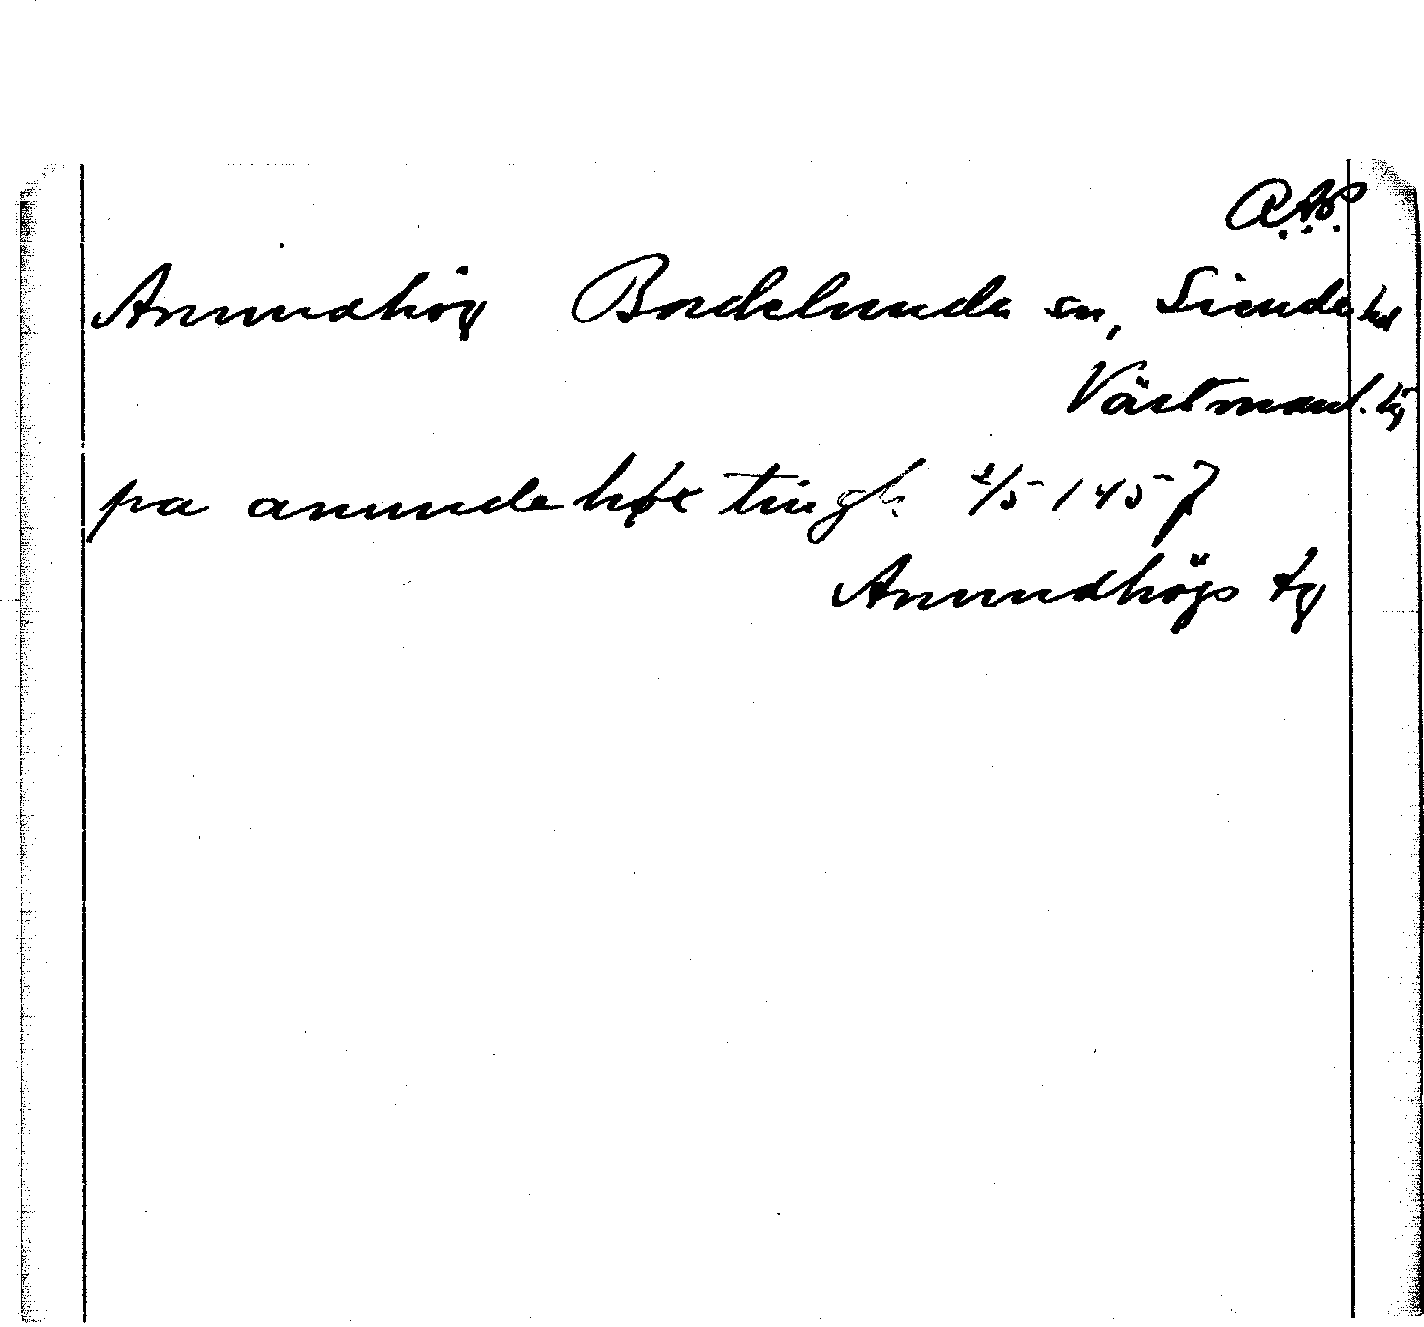 R.A.P.
Anundhög Badelunda sn, Siende hd
Västmanl.
pa anunde høx tingh 2/5 1457
Anundhögs tg